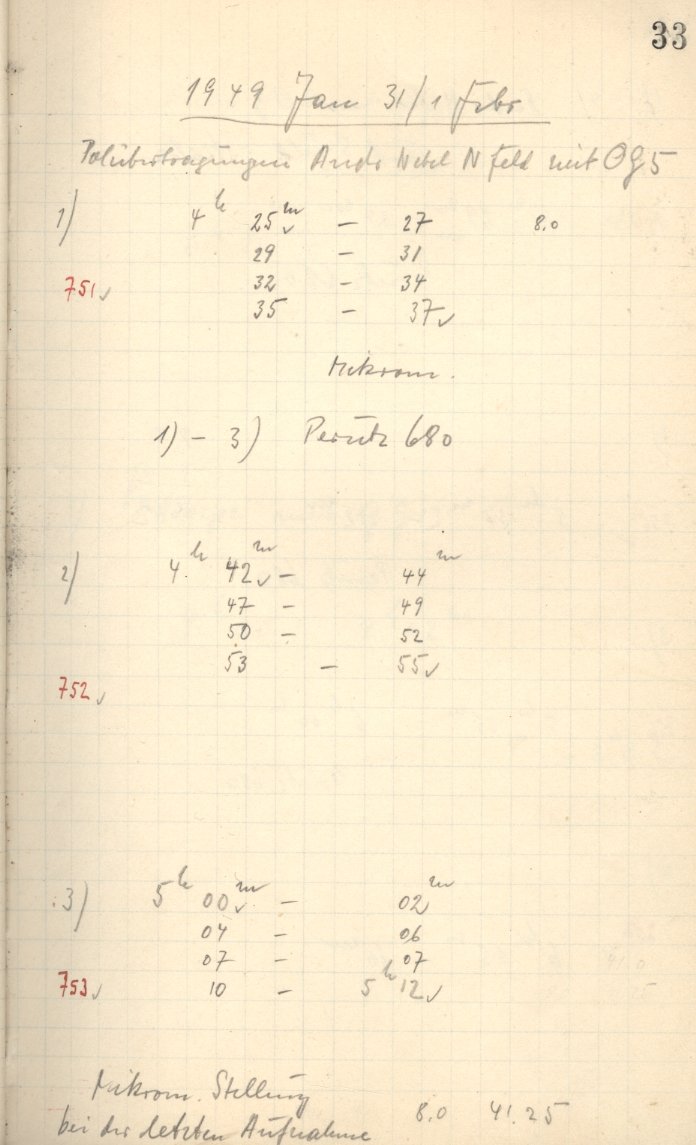 33
1949 Jan 31/1 Febr
Polübertragungen Andr Nebel N Feld mit OG5
1) 4h 25m✓ – 27 8.0
29 – 31
751✓ 32 – 34
35 – 37✓
Mikrom.
1) – 3) Perutz 680
2) 4h 42m✓ – 44m
47 – 49
50 – 52
53 – 55✓
752✓
3) 5h 00m✓ – 02m
04 – 06
07 – 07
753✓ 10 – 5h 12✓
Mikrom. Stellung
bei der letzten Aufnahme 8.0 41.25